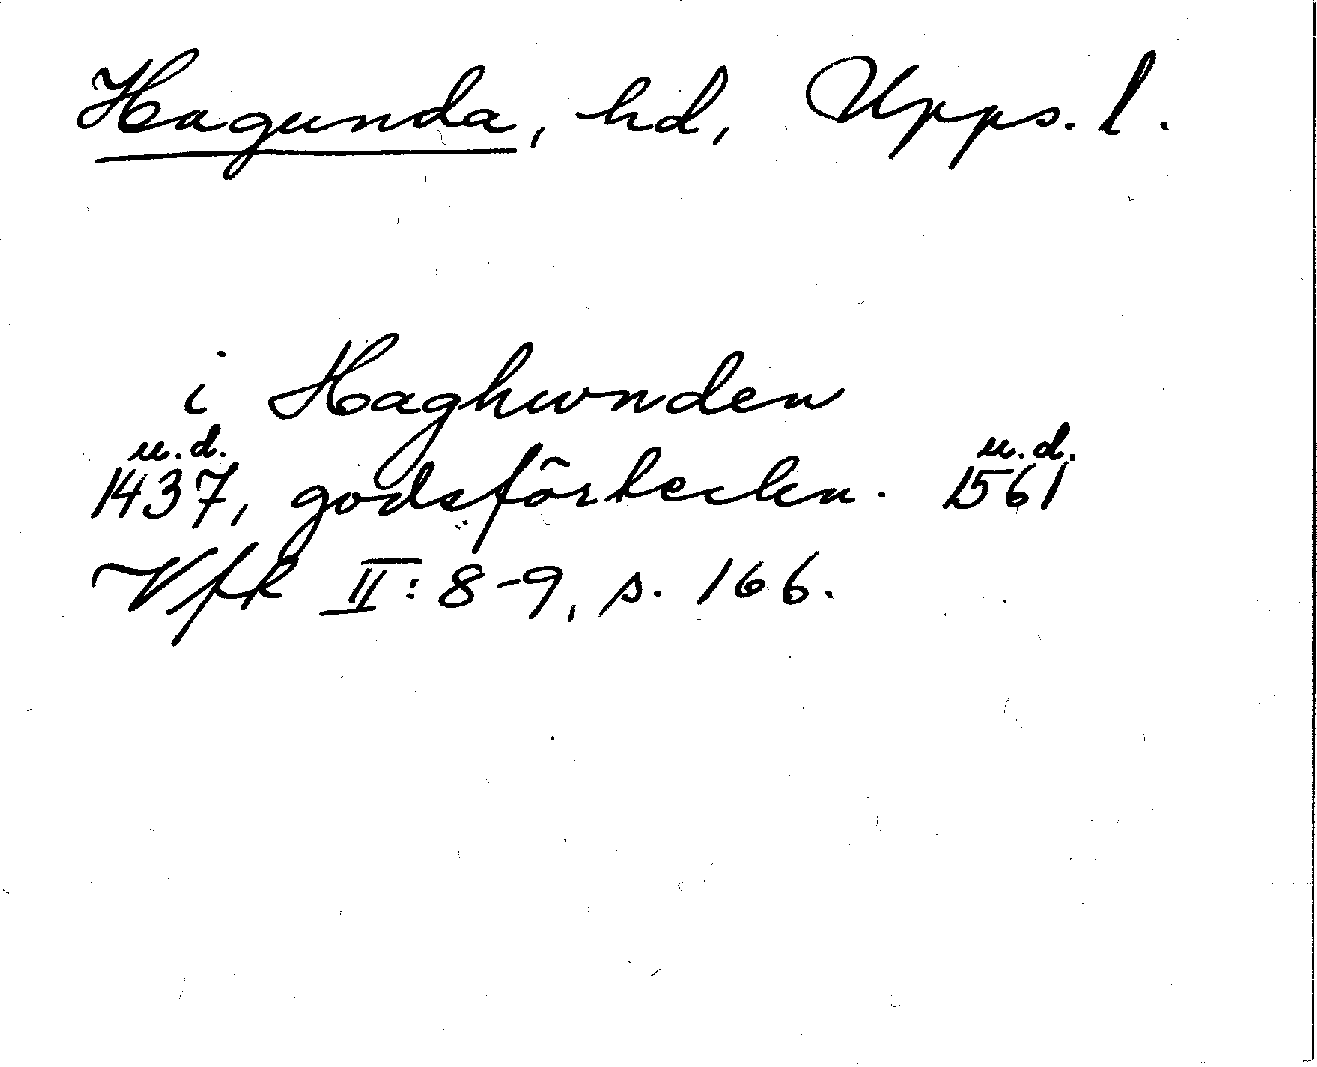 Hagunda, hd, Upps. l.
i Haghwnden
u.d. u.d.
1437, godsförteckn. 1561
Vfk II: 8-9, s. 166.